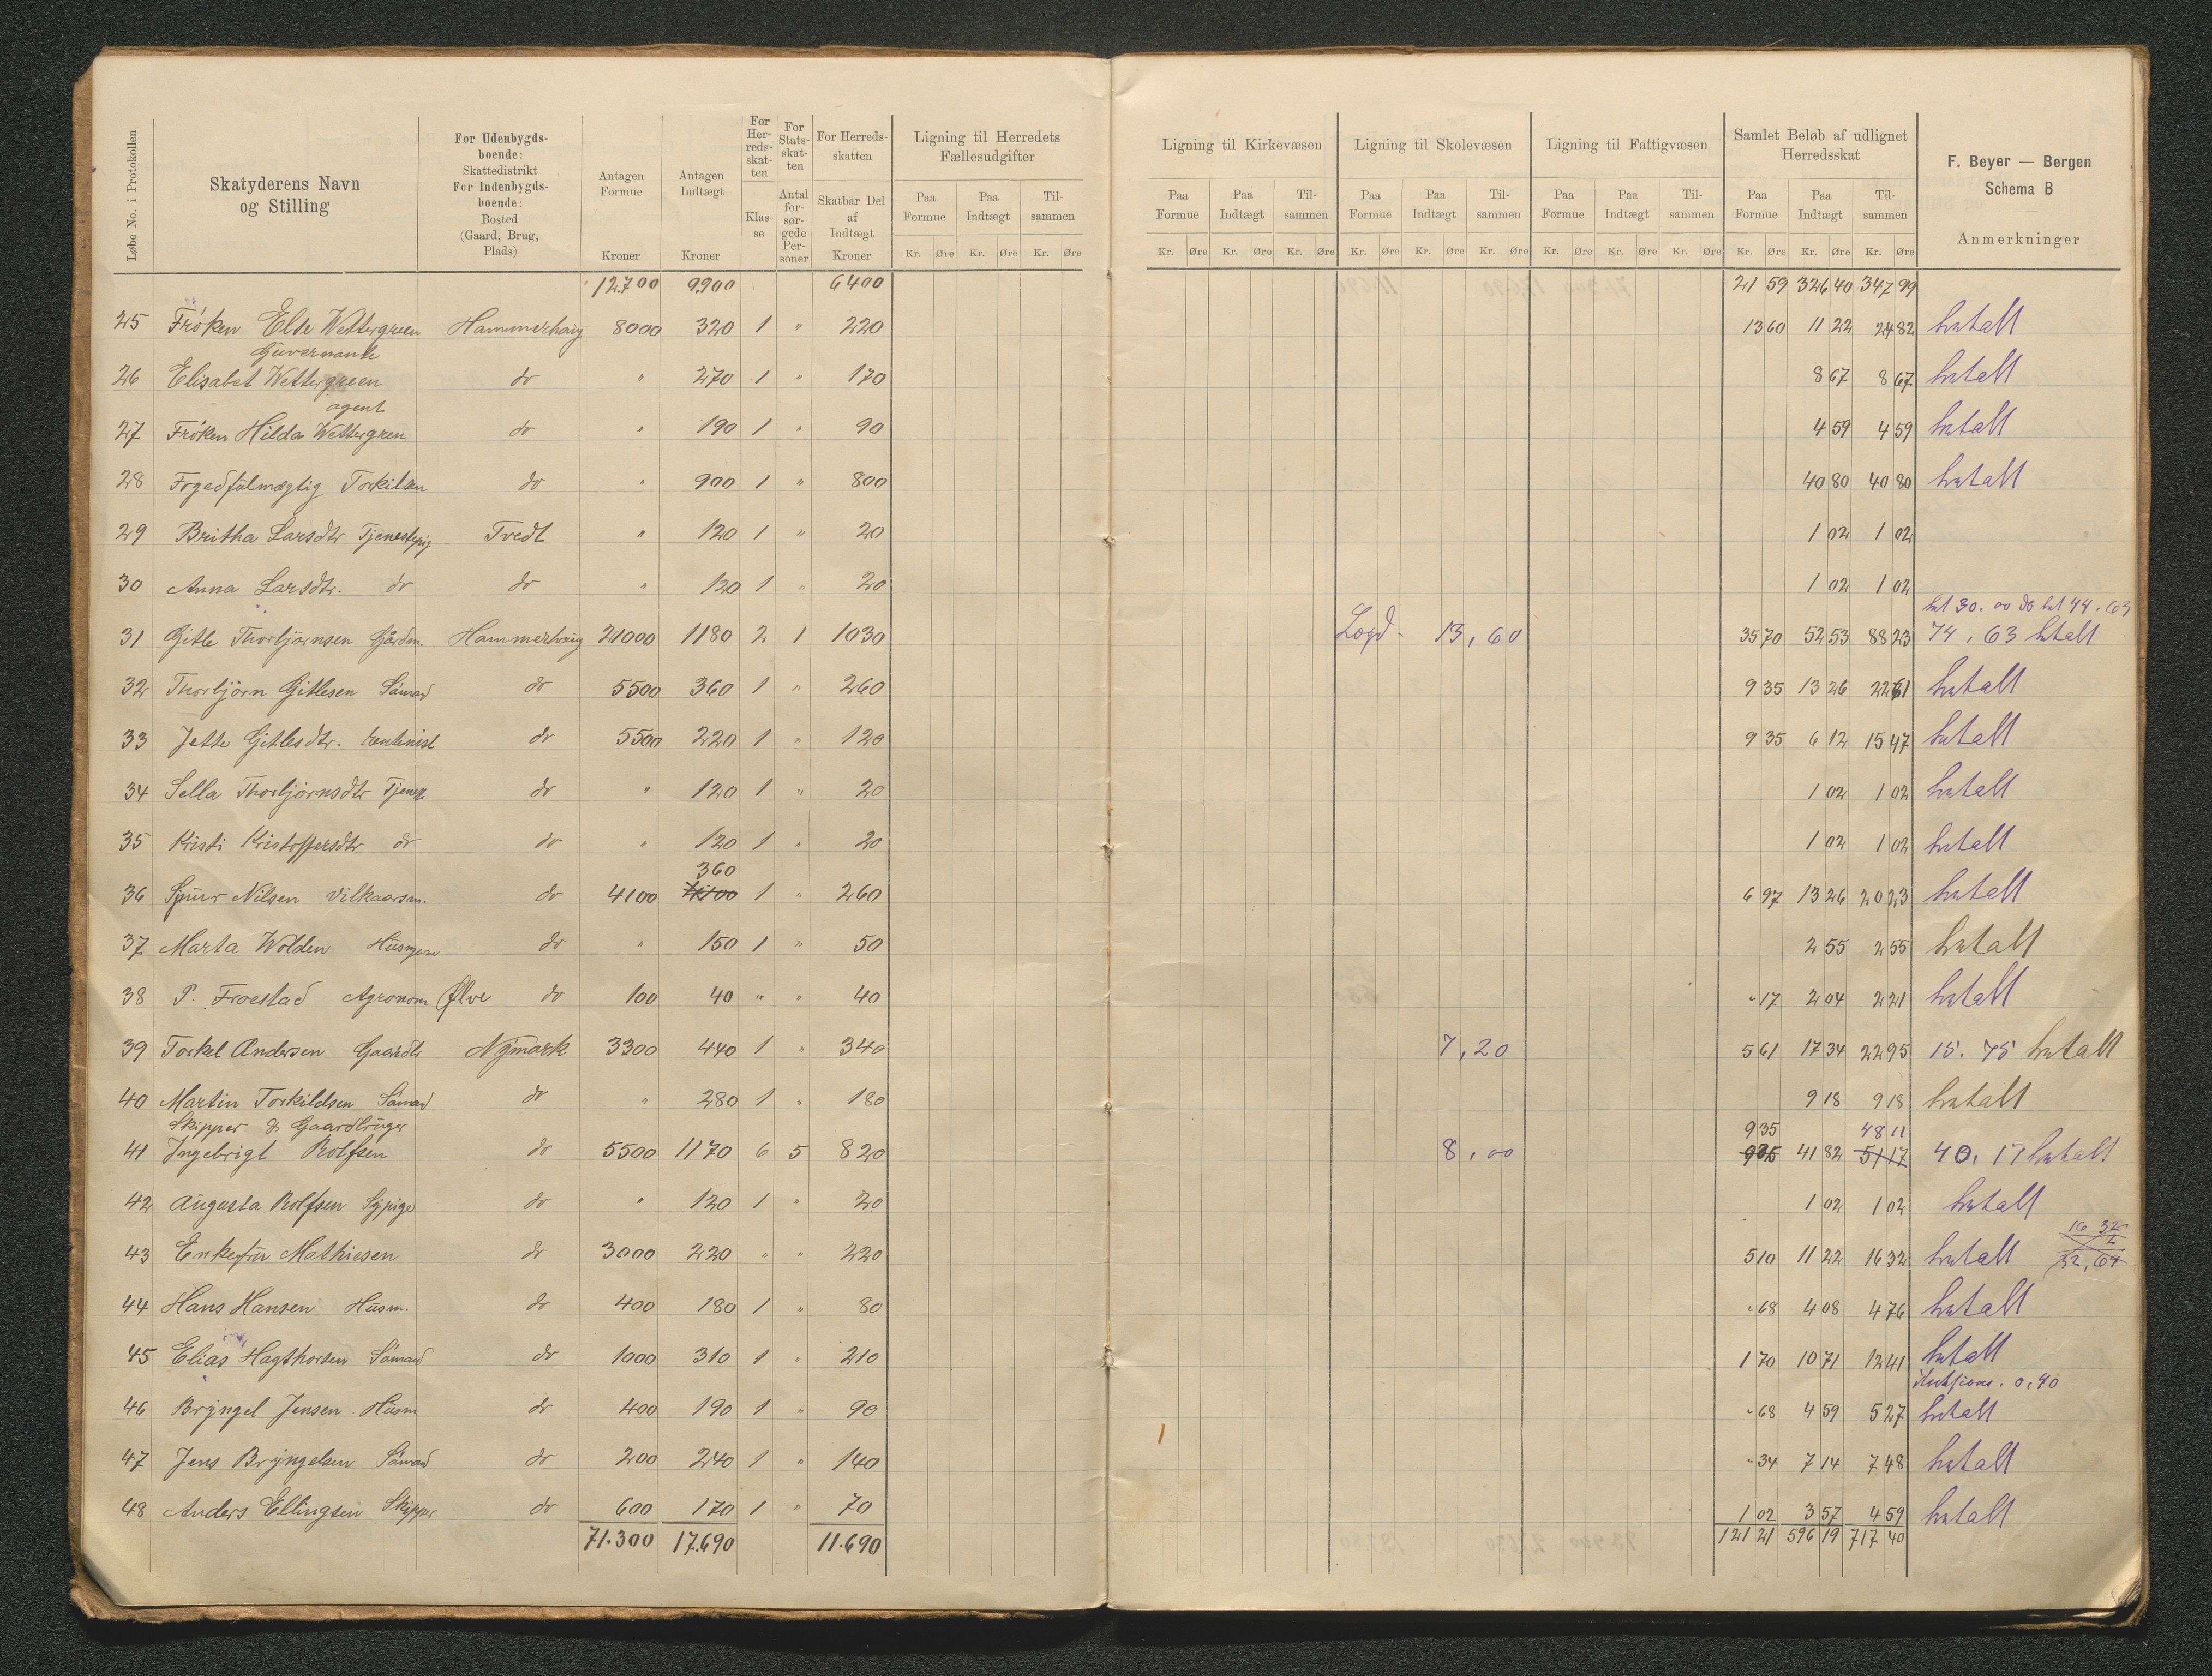 Løbe No. i Protokollen
Skatyderens Navn og Stilling
For Udenbygdsboende: Skattedistrikt For Indenbygdsboende: Bosted (Gaard, Brug, Plads)
Antagen Formue Kroner
Antagen Indtægt Kroner
For Herredsskatten Klasse
For Statsskatten Antal forsørgede Personer
For Herredsskatten Skatbar Del af Indtægt Kroner
Ligning til Herredets Fællesudgifter
Paa Formue Paa Indtægt Tilsammen
Kr. Øre Kr. Øre Kr. Øre
Ligning til Kirkevæsen
Paa Formue Paa Indtægt Tilsammen
Kr. Øre Kr. Øre Kr. Øre
Ligning til Skolevæsen
Paa Formue Paa Indtægt Tilsammen
Kr. Øre Kr. Øre Kr. Øre
Ligning til Fattigvæsen
Paa Formue Paa Indtægt Tilsammen
Kr. Øre Kr. Øre Kr. Øre
Samlet Beløb af udlignet Herredsskat
Paa Formue Paa Indtægt Tilsammen
Kr. Øre Kr. Øre Kr. Øre
F. Beyer — Bergen
Schema B
Anmerkninger
12.700 9.900 6400 21 59 326 40 347 99
25 Frøken Else Wettergreen Hammerhaug 8000 320 1 " 220 13 60 11 22 24 82 betalt
Guvernante
26 Elisabet Wettergreen do " 270 1 " 170 8 67 8 67 betalt
agent
27 Frøken Hilda Wettergren do " 190 1 " 90 4 59 4 59 betalt
28 Fogedfulmægtig Torkilsen do " 900 1 " 800 40 80 40 80 betalt
29 Britha Larsdtr Tjenestepig Tvedt " 120 1 " 20 1 02 1 02
30 Anna Larsdtr. do do " 120 1 " 20 1 02 1 02
bet 30.00 do bet 44.63
31 Gitle Thorbjørnsen Gårdm. Hammerhaug 21000 1180 2 1 1030 13,60 35 70 52 53 88 23 74,63 betalt
32 Thorbjørn Gitlesen Sømand do 5500 360 1 " 260 9 35 13 26 22 61 betalt
33 Jette Gitlesdtr. Rentenist do 5500 220 1 " 120 9 35 6 12 15 47 betalt
34 Sella Thorbjørnsdtr Tjenep. do " 120 1 " 20 1 02 1 02 betalt
35 Kristi Kristoffersdtr do do " 120 1 " 20 1 02 1 02 betalt
360
36 Sjur Nilsen Vilkaarsm. do 4100 4100 1 " 260 6 97 13 26 20 23 betalt
37 Marta Wolden do " 150 1 " 50 2 55 2 55 betalt
38 P. Froestad Agronom Ølve do 100 40 " " 40 " 17 2 04 2 21 betalt
39 Torkel Andersen Gaardbr Nymark 3300 440 1 " 340 7,20 5 61 17 34 22 95 15.75 betalt
40 Martin Torkildsen Sømand do " 280 1 " 180 9 18 9 18 betalt
Skipper & Gaardbruger 9 35 48 11
41 Ingebrigt Rolfsen do 5500 1170 6 5 820 8,00 935 41 82 51 17 40,17 betalt
42 Augusta Rolfsen Sypige do " 120 1 " 20 1 02 1 02 betalt
16 32
2
43 Enkefru Mathiesen do 3000 220 " " 220 5 10 11 22 16 32 betalt 32,64
44 Hans Hansen Husm. do 400 180 1 " 80 " 68 4 08 4 76 betalt
45 Elias Hagthorsen Sømand do 1000 310 1 " 210 1 70 10 71 12 41 betalt
0,40
46 Bryngel Jensen Husm do 400 190 1 " 90 " 68 4 59 5 27 betalt
47 Jens Bryngelsen Sømand do 200 240 1 " 140 " 34 7 14 7 48 betalt
48 Anders Ellingsen Skipper do 600 170 1 " 70 1 02 3 57 4 59 betalt
71.300 17.690 11.690 121 21 596 19 717 40